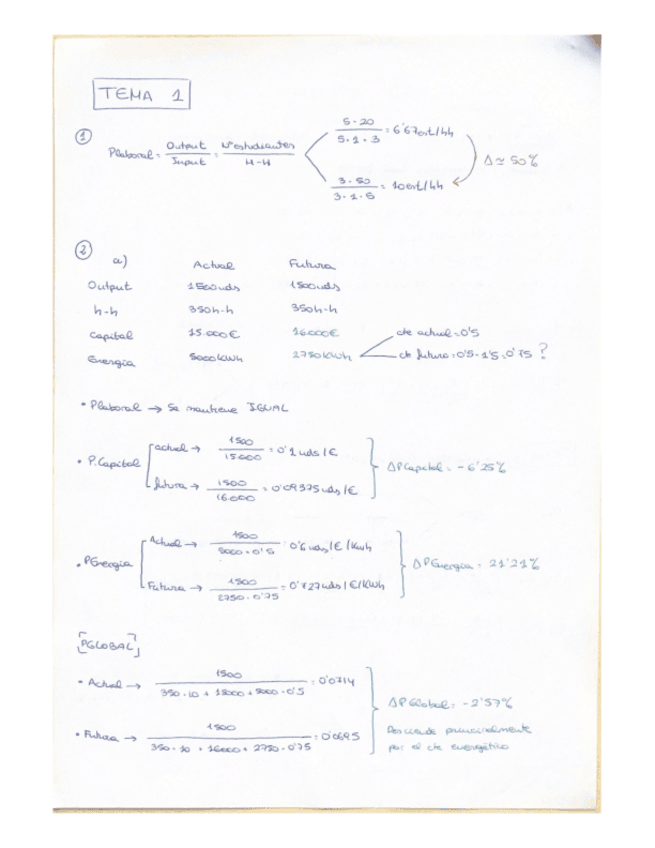 TEMA 1
① Plaboral = Output / Input = Nº estudiantes / H-H
5·20 / 5·1·3 = 6'67 est/hh
3·50 / 3·1·5 = 10 est/hh
Δ ≃ 50%
②
a) Actual Futura
Output 1500 uds 1500 uds
h-h 350 h-h 350 h-h
Capital 15.000€ 16000€
Energía 5000 kWh 2750 kWh
cte actual = 0'5
cte futura = 0'5 · 1'5 = 0'75 ?
• Plaboral → Se mantiene IGUAL
• P.Capital
actual → 1500 / 15000 = 0'1 uds/€
futura → 1500 / 16.000 = 0'09375 uds/€
ΔPCapital = -6'25%
• PEnergía
Actual → 1500 / 5000·0'5 = 0'6 uds/€/Kwh
Futura → 1500 / 2750·0'75 = 0'727 uds/€/KWh
ΔPEnergía = 21'21%
PGLOBAL
• Actual → 1500 / 350·10 + 15000 + 5000·0'5 = 0'0714
• Futura → 1500 / 350·10 + 16000 + 2750·0'75 = 0'0695
ΔPGlobal = -2'57%
Desciende
por el cte energético